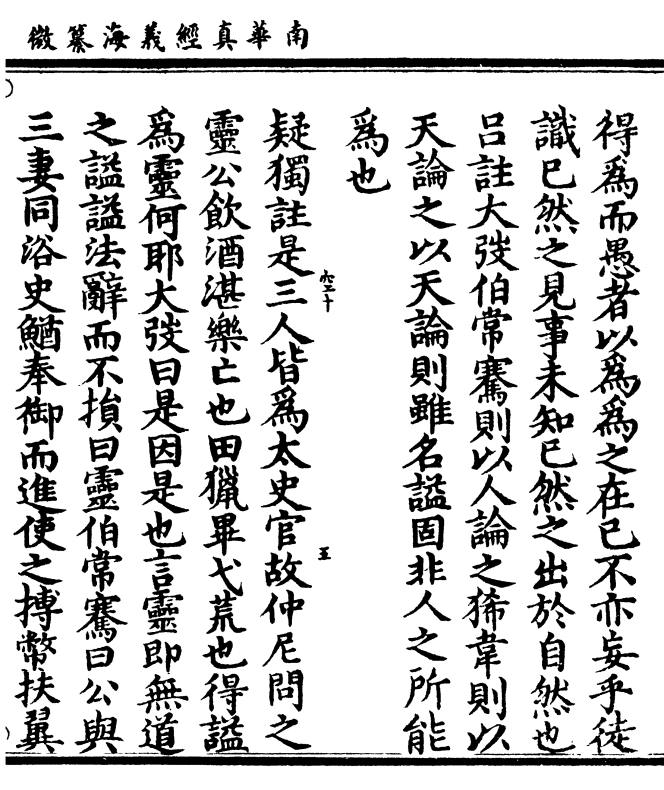 南華真經義海纂微
得爲而愚者以爲爲之在已不亦妄乎徒
識已然之見事未知已然之出於自然也
吕註大弢伯常騫則以人論之狶韋則以
天論之以天論則雖名謚固非人之所能
爲也
疑獨註是三人皆爲太史官故仲尼問之
靈公飲酒湛樂亡也田獵畢弋荒也得謚
爲靈何耶大弢曰是因是也言靈即無道
之謚謚法辭而不損曰靈伯常騫曰公與
三妻同浴史鰌奉御而進使之搏幣扶翼
五